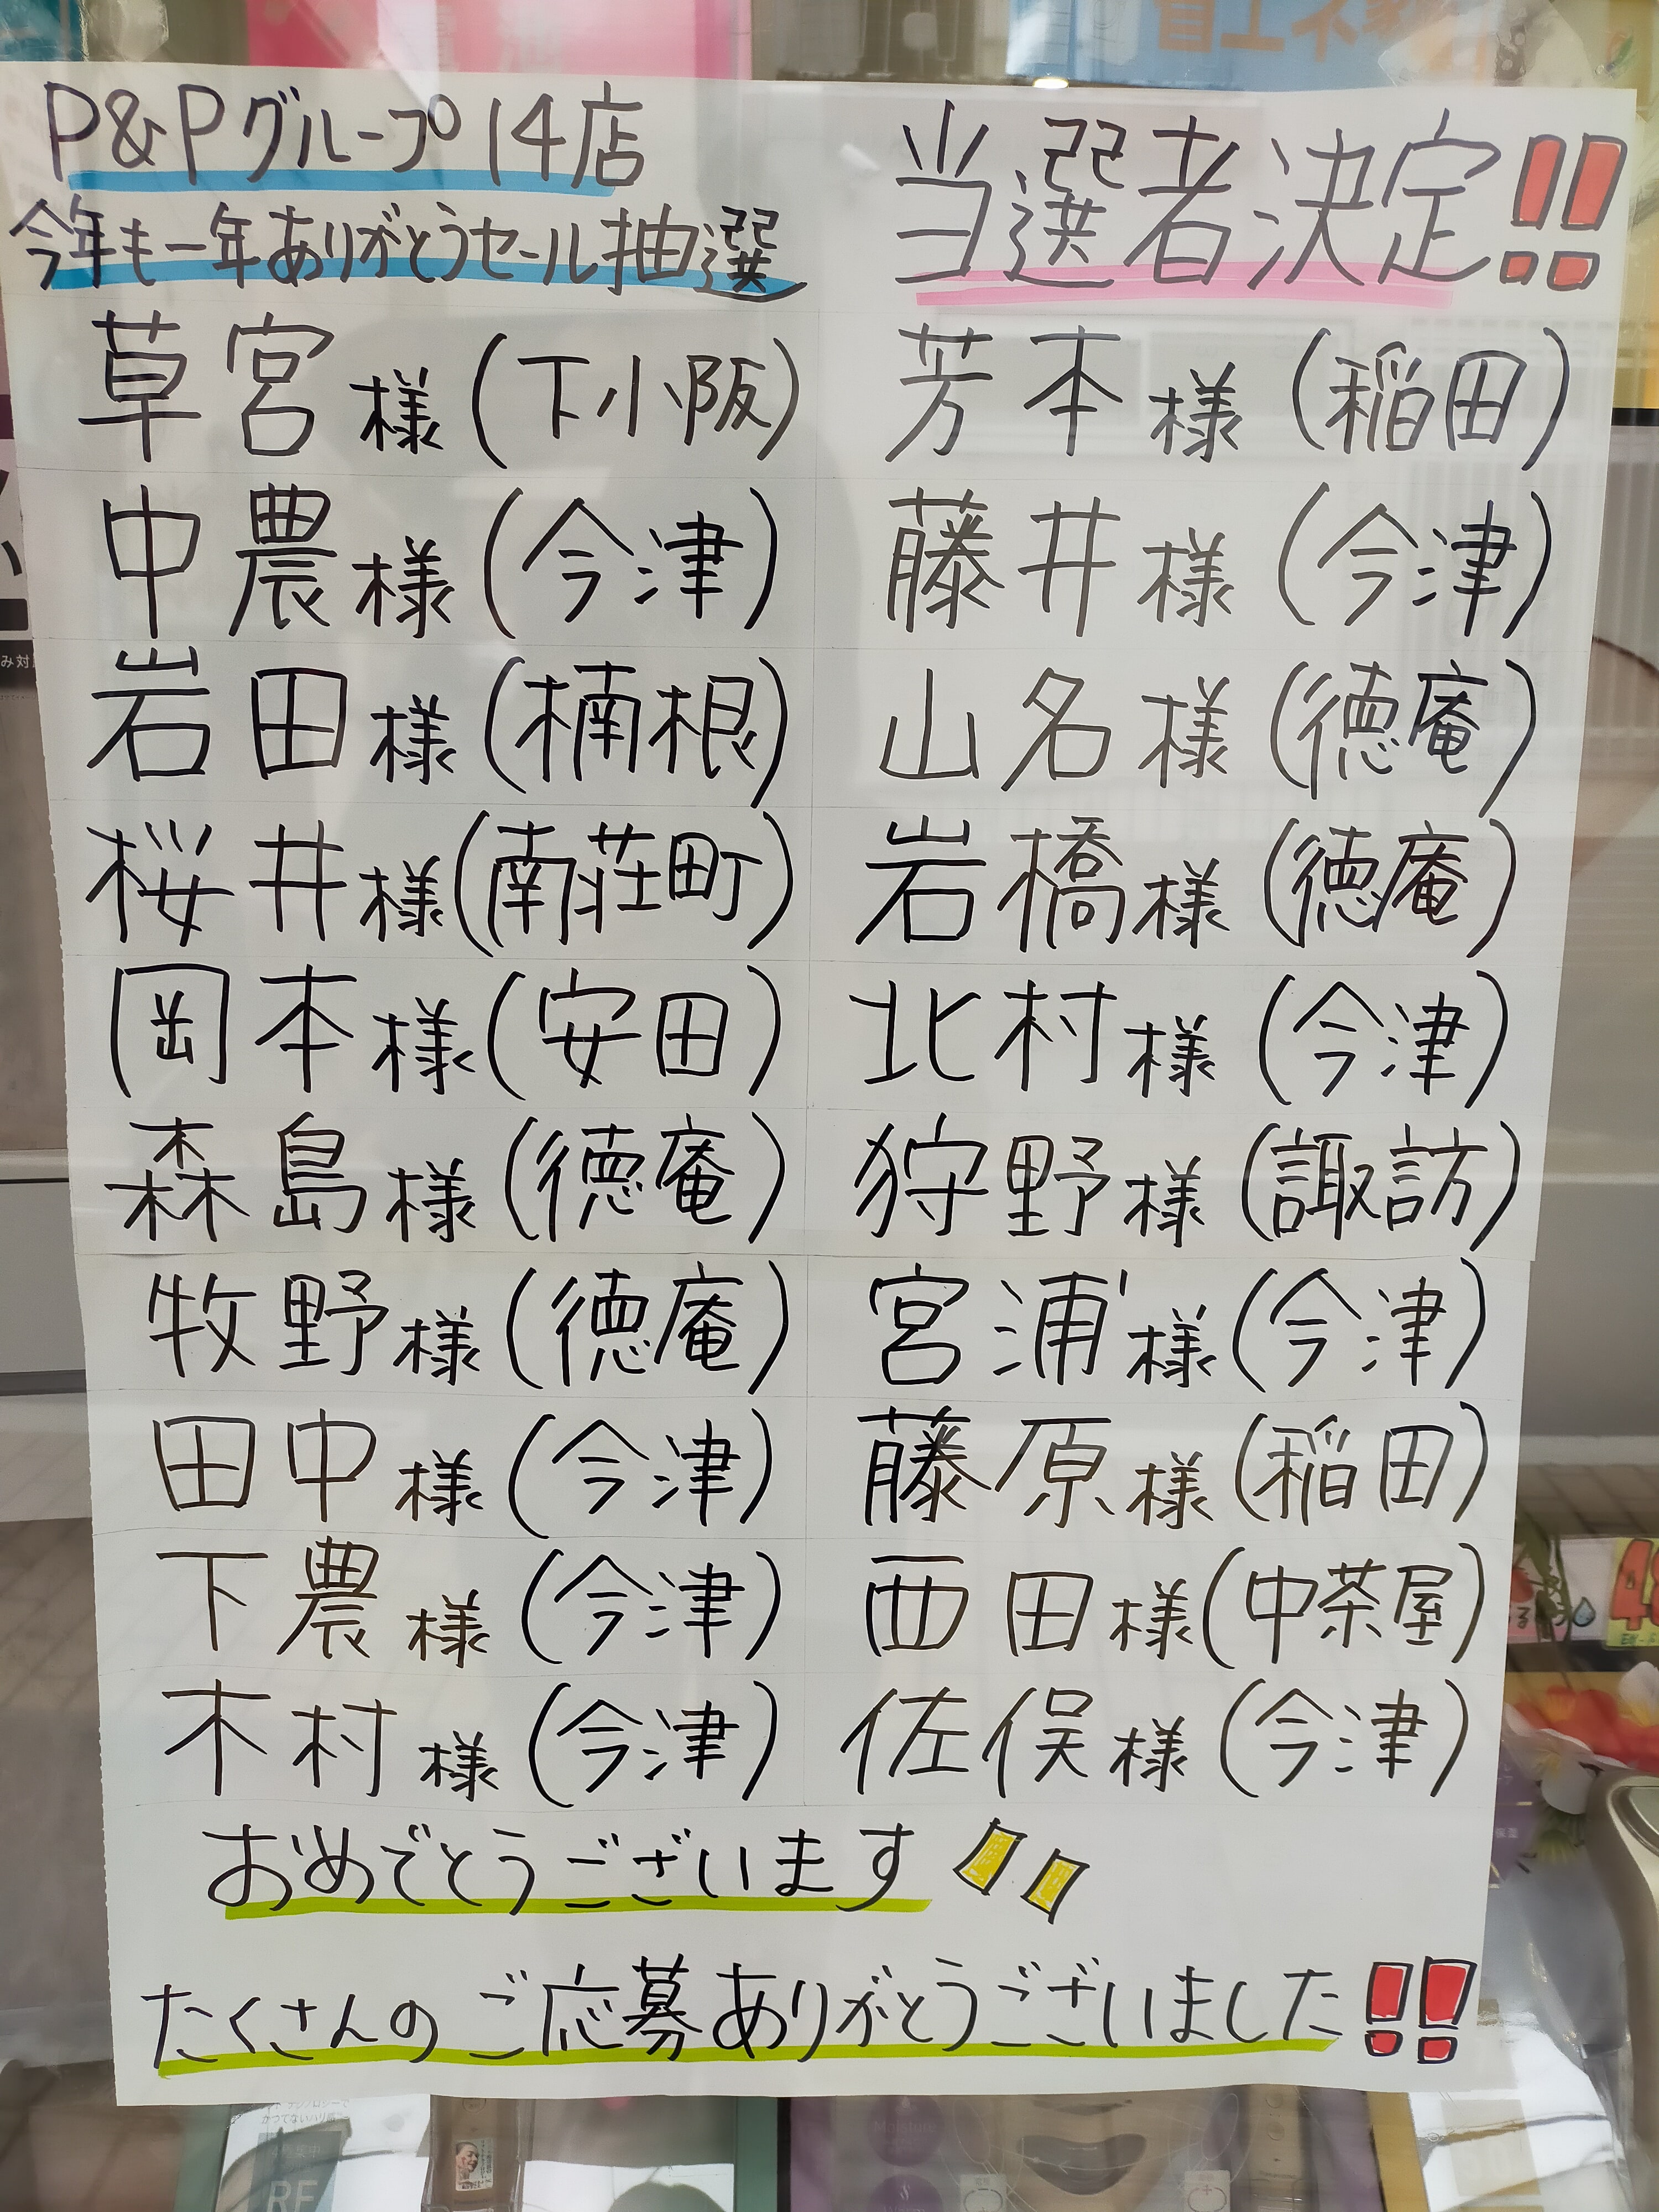 P&Pグループ14店
今年も一年ありがとうセール抽選
当選者決定!!
草宮様(下小阪)
芳本様(稲田)
中農様(今津)
藤井様(今津)
岩田様(楠根)
山名様(徳庵)
桜井様(南荘町)
岩橋様(徳庵)
岡本様(安田)
北村様(今津)
森島様(徳庵)
狩野様(諏訪)
牧野様(徳庵)
宮浦様(今津)
田中様(今津)
藤原様(稲田)
下農様(今津)
西田様(中茶屋)
木村様(今津)
佐俣様(今津)
おめでとうございます
たくさんのご応募ありがとうございました!!
RF